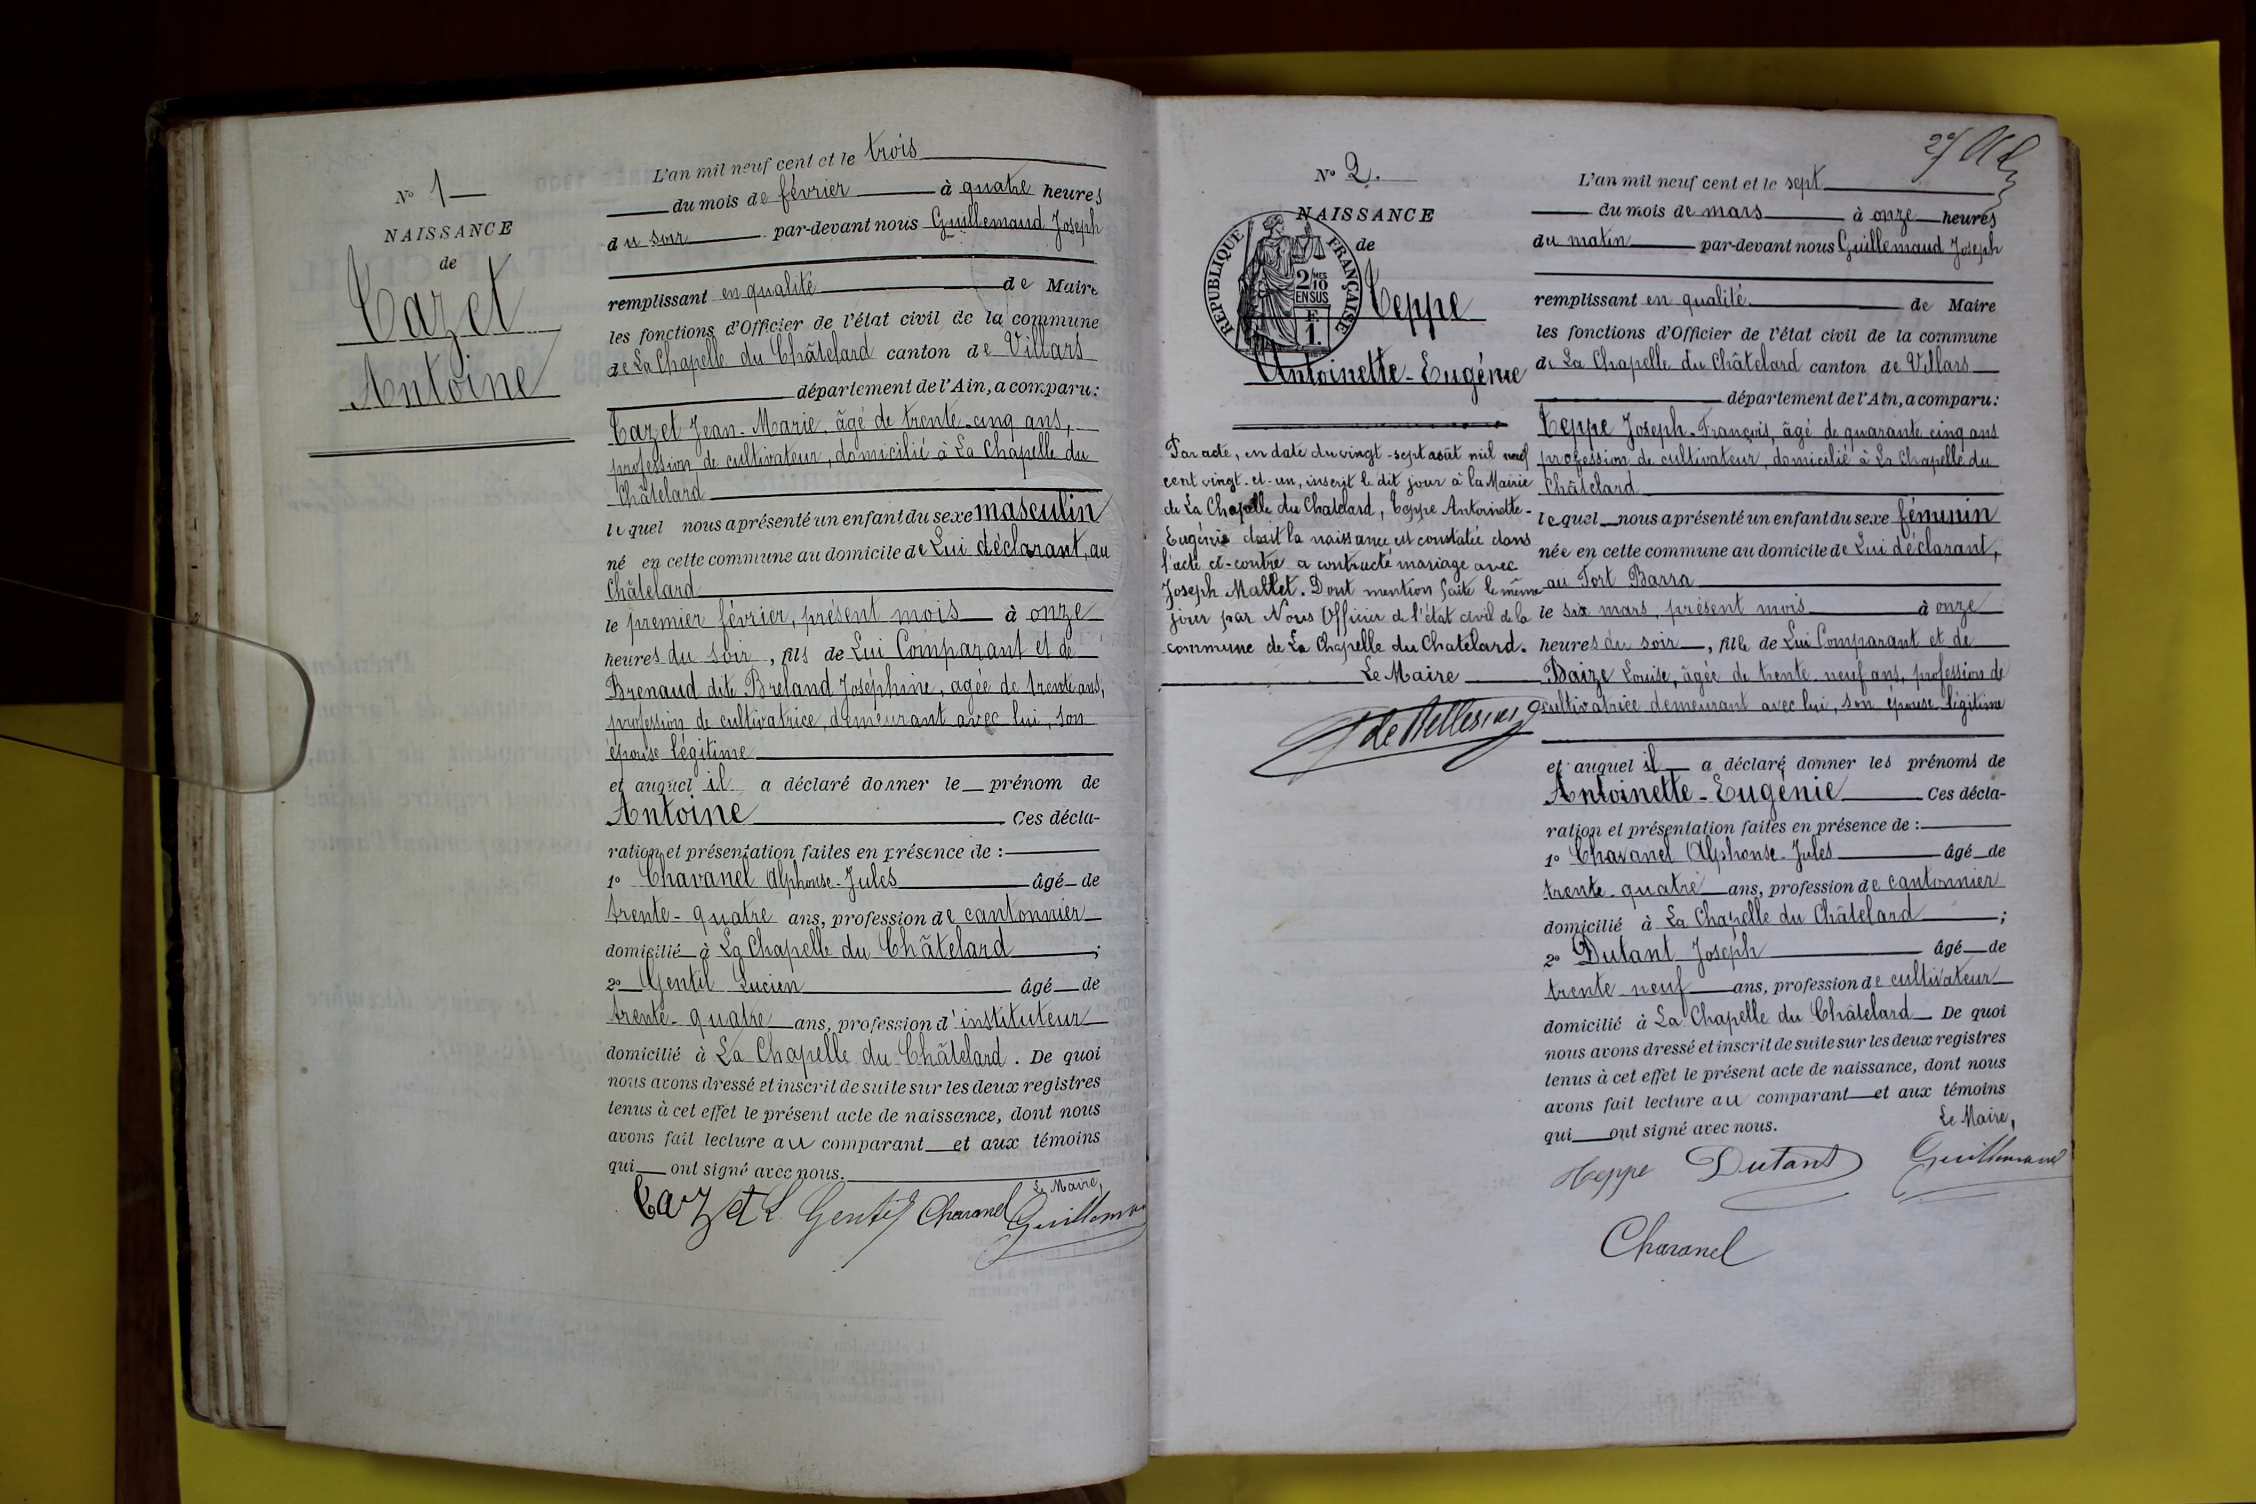 N° 1
NAISSANCE
de
Cazet
Antoine
L'an mil neuf cent et le trois
du mois de février à quatre heures
du soir par-devant nous Guillemaud Joseph
remplissant en qualité de Maire
les fonctions d'Officier de l'état civil de la commune
de La Chapelle du Châtelard canton de Villars
département de l'Ain, a comparu:
Cazet Jean-Marie, âgé de trente-cinq ans,
profession de cultivateur, domicilié à La Chapelle du
Châtelard
lequel nous a présenté un enfant du sexe masculin
né en cette commune au domicile de Lui déclarant, au
Châtelard
le premier février, présent mois à onze
heures du soir, fils de Lui Comparant et de
Brenaud dite Breland Joséphine, agée de trente ans,
profession de cultivatrice, demeurant avec lui, son
épouse légitime
et auquel il a déclaré donner le prénom de
Antoine Ces décla-
ration et présentation faites en présence de :
1° Chavanel Alphonse-Jules âgé de
trente-quatre ans, profession de cantonnier
domicilié à La Chapelle du Châtelard ;
2° Gentil Lucien âgé de
trente-quatre ans, profession d'instituteur
domicilié à La Chapelle du Châtelard. De quoi
nous avons dressé et inscrit de suite sur les deux registres
tenus à cet effet le présent acte de naissance, dont nous
avons fait lecture au comparant et aux témoins
qui ont signé avec nous.
Le Maire,
Cazet L Gentil Chavanel Guillemaud
N° 2.
NAISSANCE
de
RÉPUBLIQUE FRANÇAISE
2/10 MES
EN SUS
F.
1.
Teppe
Antoinette-Eugénie
Par acte, en date du vingt-sept août mil neuf
cent vingt-et-un, inscrit le dit jour à la Mairie
de La Chapelle du Chatelard, Teppe Antoinette-
Eugénie dont la naissance est constatée dans
l'acte ci-contre a contracté mariage avec
Joseph Mallet. Dont mention faite le même
jour par Nous Officier de l'état civil de la
commune de La Chapelle du Chatelard.
Le Maire
L'an mil neuf cent et le sept
du mois de mars à onze heures
du matin par-devant nous Guillemaud Joseph
remplissant en qualité de Maire
les fonctions d'Officier de l'état civil de la commune
de La Chapelle du Châtelard canton de Villars
département de l'Ain, a comparu:
Teppe Joseph-François, âgé de quarante cinq ans
profession de cultivateur, domicilié à La Chapelle du
Châtelard
lequel nous a présenté un enfant du sexe féminin
née en cette commune au domicile de Lui déclarant,
au Fort Barra
le six mars, présent mois à onze
heures du soir, fille de Lui Comparant et de
Baize Louise, âgée de trente-neuf ans, profession de
cultivatrice demeurant avec lui, son épouse légitime
et auquel il a déclaré donner les prénoms de
Antoinette-Eugénie Ces décla-
ration et présentation faites en présence de :
1° Chavanel Alphonse-Jules âgé de
trente-quatre ans, profession de cantonnier
domicilié à La Chapelle du Châtelard ;
2° Dutant Joseph âgé de
trente neuf ans, profession de cultivateur
domicilié à La Chapelle du Châtelard De quoi
nous avons dressé et inscrit de suite sur les deux registres
tenus à cet effet le présent acte de naissance, dont nous
avons fait lecture au comparant et aux témoins
qui ont signé avec nous. Le Maire,
Teppe Dutant Guillemaud
Chavanel